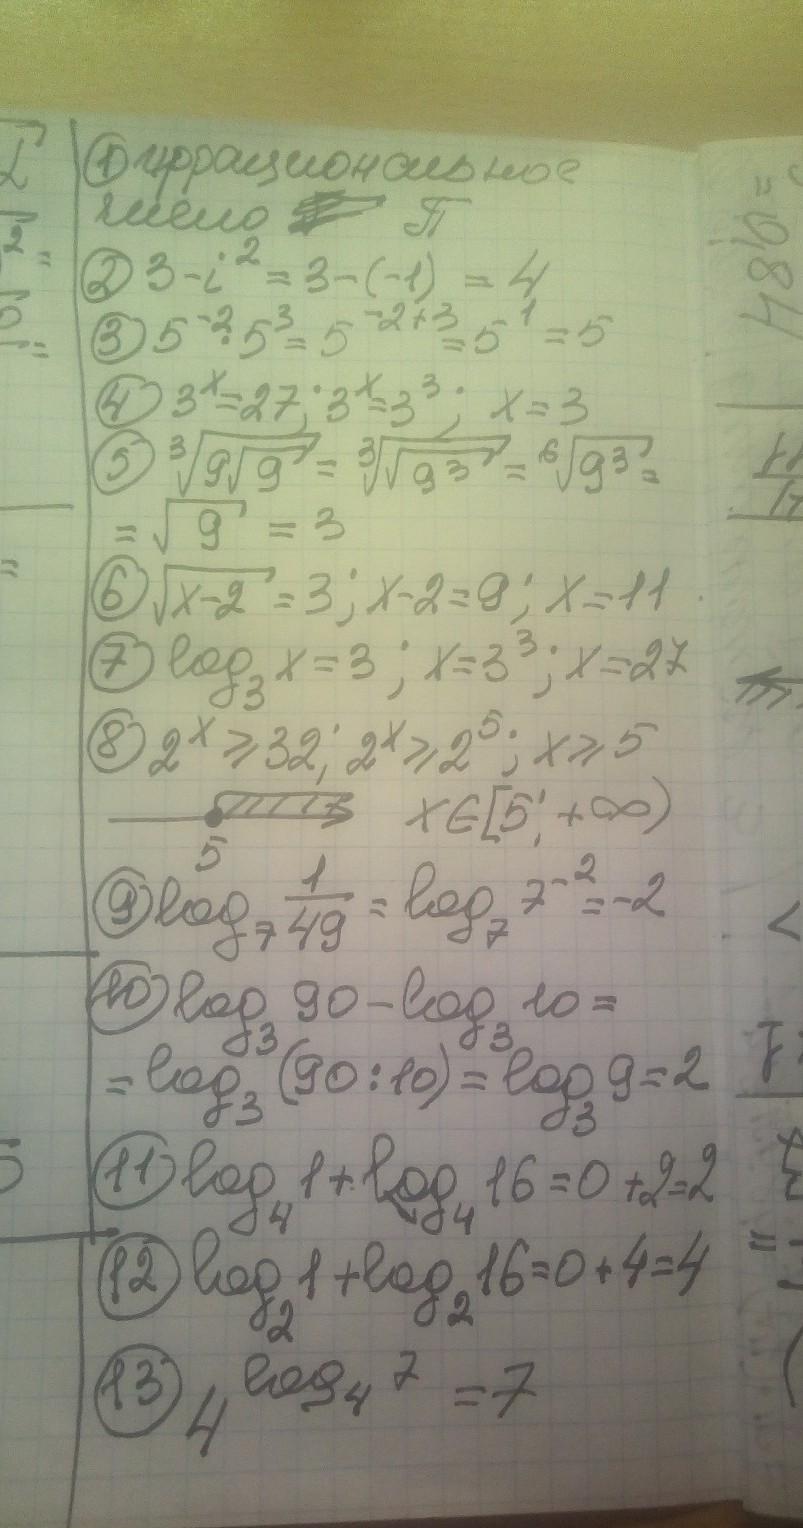 ① иррациональное
число π
② 3-i² = 3-(-1) = 4
③ 5⁻²·5³ = 5⁻²⁺³ = 5¹ = 5
④ 3ˣ=27; 3ˣ=3³; x=3
⑤ ∛(9√9) = ∛(√(9³)) = ⁶√(9³) =
= √9 = 3
⑥ √(x-2) = 3; x-2=9; x=11
⑦ log₃ x = 3; x=3³; x=27
⑧ 2ˣ ⩾ 32; 2ˣ ⩾ 2⁵; x ⩾ 5
5 x∈[5; +∞)
⑨ log₇ 1/49 = log₇ 7⁻² = -2
⑩ log₃ 90 - log₃ 10 =
= log₃ (90:10) = log₃ 9 = 2
⑪ log₄ 1 + log₄ 16 = 0 + 2 = 2
⑫ log₂ 1 + log₂ 16 = 0 + 4 = 4
⑬ 4^(log₄ 7) = 7